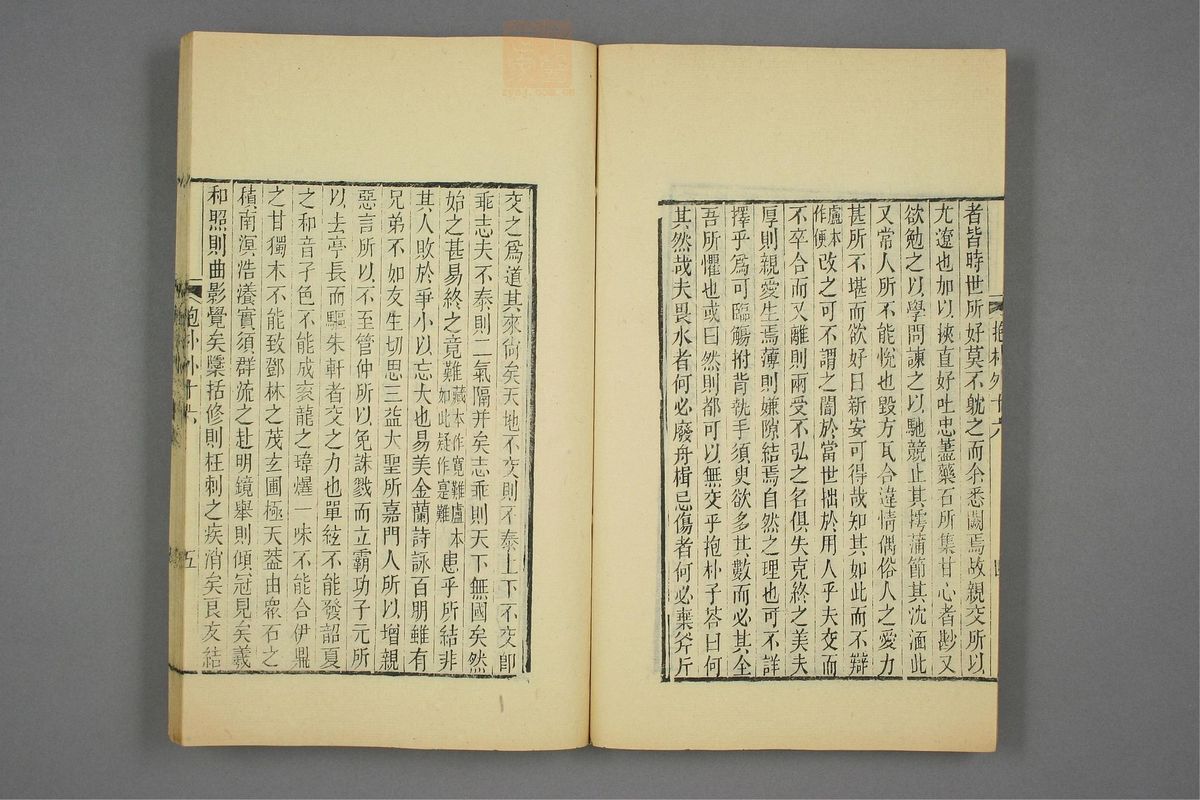 者皆時世所好莫不躭之而余悉闕焉故親交所以
尤遼也加以挾直好吐忠藎藥石所集甘心者尠又
欲勉之以學問諫之以馳競止其摴蒲節其沈湎此
又常人所不能悅也毀方瓦合違情偶俗人之愛力
甚所不堪而欲好日新安可得哉知其如此而不辯
盧本作便改之可不謂之闇於當世拙於用人乎夫交而
不卒合而又離則兩受不弘之名俱失克終之美夫
厚則親愛生焉薄則嫌隙結焉自然之理也可不詳
擇乎爲可臨觴拊背執手須臾欲多其數而必其全
吾所懼也或曰然則都可以無交乎抱朴子答曰何
其然哉夫畏水者何必廢舟楫忌傷者何必棄斧斤
交之爲道其來尙矣天地不交則不泰上下不交卽
乖志夫不泰則二氣隔并矣志乖則天下無國矣然
始之甚易終之竟難藏本作寛難盧本如此疑作寔難患乎所結非
其人敗於爭小以忘大也易美金蘭詩詠百朋雖有
兄弟不如友生切思三益大聖所嘉門人所以增親
惡言所以不至管仲所以免誅戮而立霸功子元所
以去亭長而驅朱軒者交之力也單絃不能發韶夏
之和音孑色不能成袞龍之瑋燁一味不能合伊鼎
之甘獨木不能致鄧林之茂玄圃極天葢由衆石之
積南溟浩瀁實須群流之赴明鏡舉則傾冠見矣羲
和照則曲影覺矣櫽括修則枉刺之疾消矣良友結
五